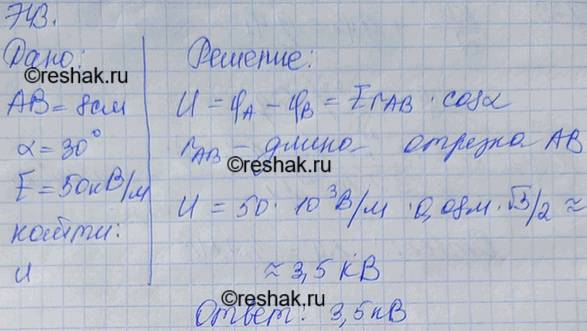 743.
Дано:
©reshak.ru
AB = 8см
α = 30°
E = 50кВ/м
найти:
U
Решение:
©reshak.ru
U = φA − φB = E rAB · cosα
rAB – длина отрезка AB
U = 50 · 10³ В/м · 0,08м · √3/2 ≈
≈ 3,5 кВ
©reshak.ru
Ответ: 3,5кВ